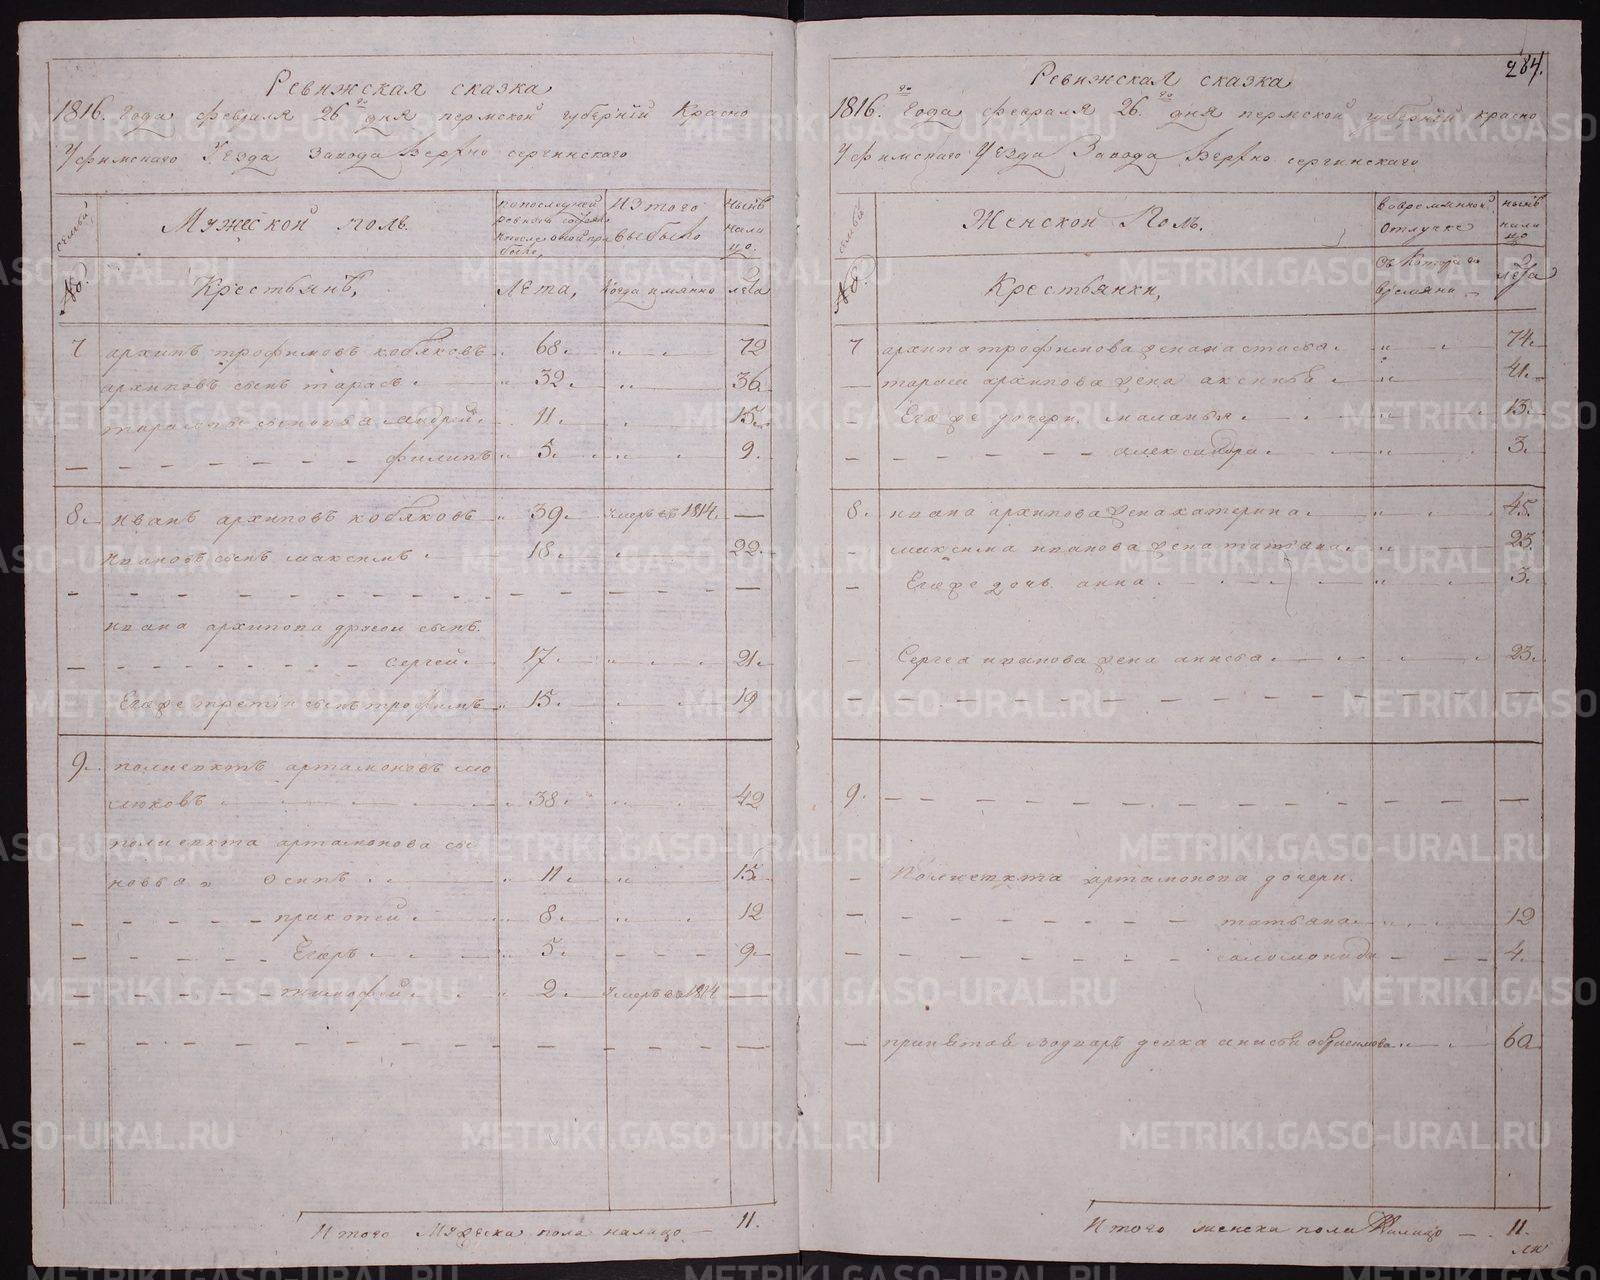 Ревижская сказка
1816. Года февраля 26го дня пермской губернiй Красно
Уфимскаго Уезда Завода Верхно сергинскаго
семьи
Мужеской полъ.
попоследней
Изтого
выбыло
ныне
нали
цо.
№.
Крестьянъ,
Лета,
когда имянно
лета
7 архипъ трофимовъ кобяковъ 68. 72
архиповъ сынъ тарасъ. 32. 36.
тарасовы сыновья андрей. 11. 15.
филипъ 5. 9.
8. иванъ архиповъ кобяковъ 39 умеръ въ 1814
ивановъ сынъ максимъ 18. 22.
ивана архипова другой сынъ.
сергей 17 21.
Егоже третiи сынъ трофимъ 15. 19
9. полиектъ артамоновъ мо
люковъ 38. 42
полиекта артамонова сы
новья осипъ 11. 15.
прокопей 8. 12
Егоръ 5. 9
тимофей 2. умеръ въ 1814
Итого Мужеска пола налицо 11.
284.
Ревижская сказка
1816го Года февраля 26.го дня пермской губернiй красно
Уфимскаго Уезда Завода Верхно сергинскаго
семьи
Женской Полъ.
вовременной
отлучке
ныне
нали
цо
№.
Крестьянки,
Съ котораго
времяни
лета
7 архипа трофимова жена настасья. 74.
тараса архипова жена аксинья 41.
Егоже дочери маланья. 13.
александра. 3.
8. ивана архипова жена катерина. 45.
максима иванова жена татьяна. 23.
Егоже дочь анна. 3.
Сергея иванова жена анисья. 23.
9.
Полиекта артамонова дочери.
татьяна. 12
соломонида 4.
60
Итого женска пола налицо 11.